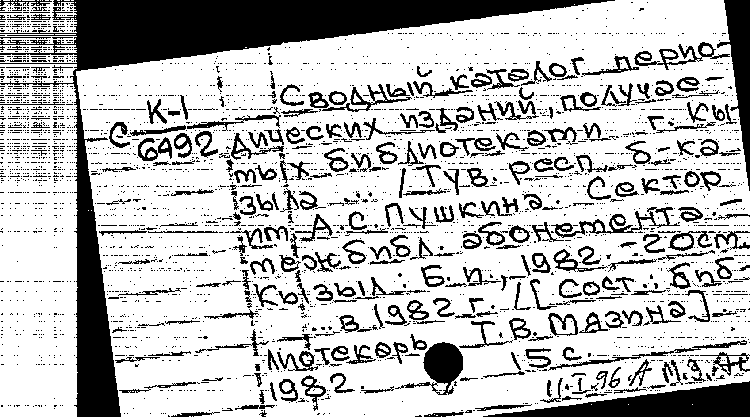 С К-1
6492
Сводный каталог перио-
дических изданий, получае-
мых библиотеками г. Кы-
зыла ... / Тув. респ. б-ка
им. А.С. Пушкина. Сектор
межбибл. абонемента. -
Кызыл: Б. и., 1982. - 20см.
... в 1982 г. / [Сост.: биб-
лиотекарь Т.В. Мязина].
1982. 15 с.
11.I.96 А М.З.